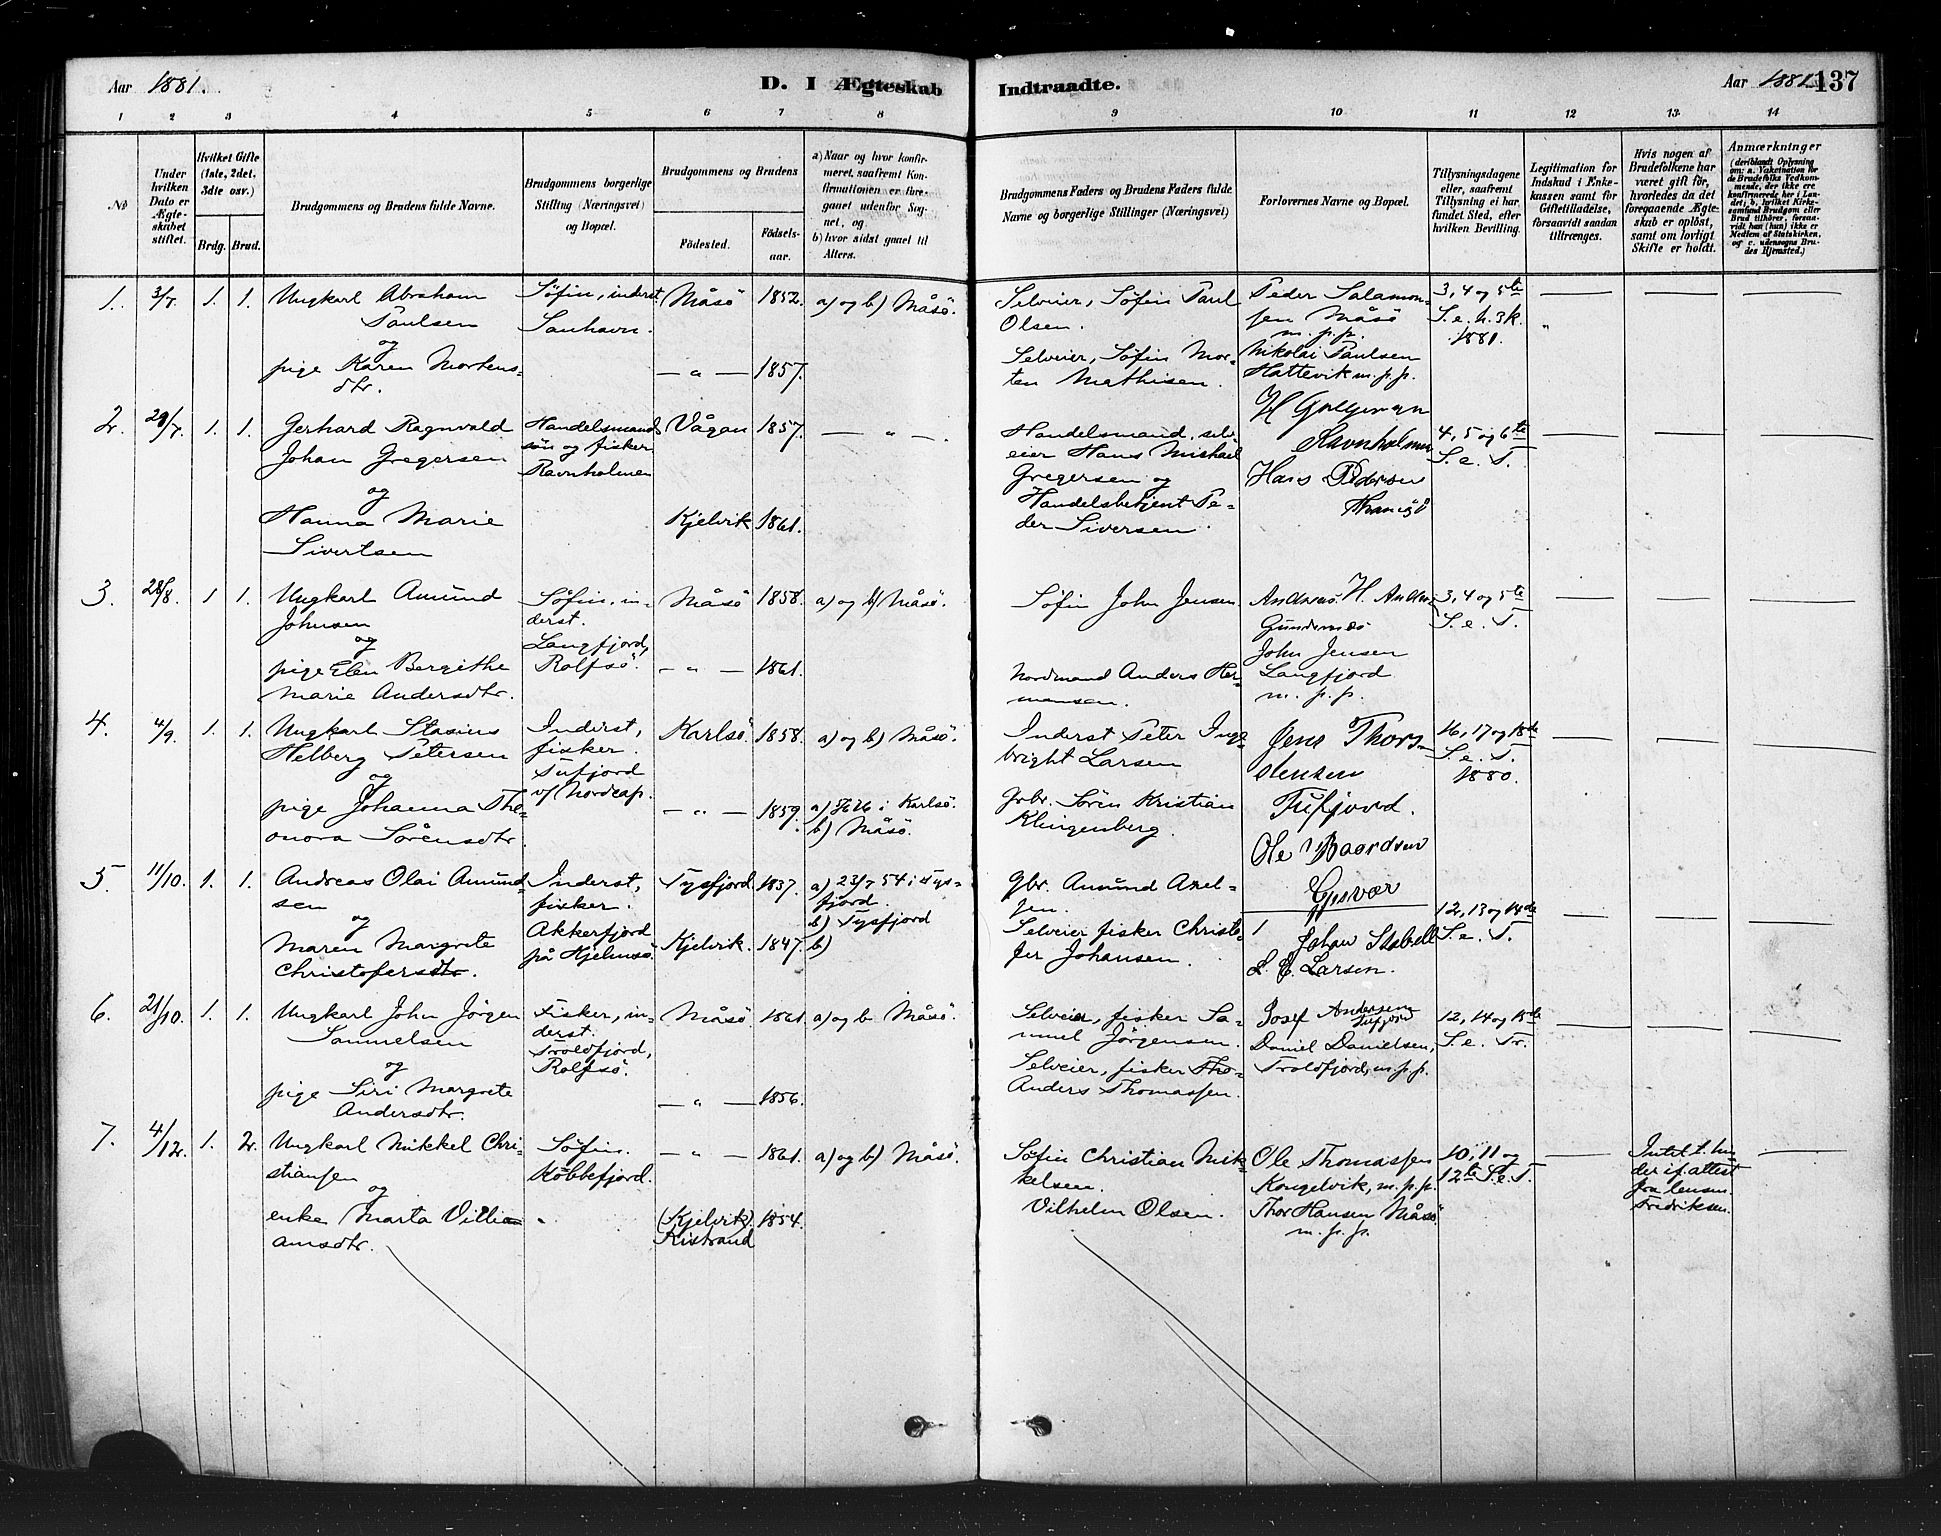 Aar 1881.
D. I Ægteskab Indtraadte.
Aar 1881. 137
1 2 3 4 5 6 7 8 9 10 11 12 13 14
No
Under hvilken Dato er Ægteskabet stiftet.
Hvilket Gifte (1ste, 2det, 3die osv.)
Brdg. Brud.
Brudgommens og Brudens fulde Navne.
Brudgommens borgerlige Stilling (Næringsvei) og Bopæl.
Brudgommens og Brudens
Fødested.
Fødselsaar.
a) Naar og hvor konfirmeret, saafremt Konfirmationen er foregaaet udenfor Sognet, og
b) hvor sidst gaaet til Alters.
Brudgommens Faders og Brudens Faders fulde Navne og borgerlige Stillinger (Næringsvei)
Forlovernes Navne og Bopæl.
Tillysningsdagene eller, saafremt Tillysning ei har fundet Sted, efter hvilken Bevilling.
Legitimation for Indskud i Enkekassen samt for Giftetilladelse, forsaavidt saadan tiltrænges.
Hvis nogen af Brudefolkene har været gift før, hvorledes da det foregaaende Ægteskab er opløst, samt om lovligt Skifte er holdt.
Anmærkninger
(deriblandt Oplysning om: a. Vaksination for de Brudefolks Vedkommende, der ikke ere konfirmerede her i Landet; b. hvilket Kirkesamfund Brudgom eller Brud tilhører, forsaavidt han (hun) ikke er Medlem af Statskirken, og c. udensogns Brudes Hjemsted.)
1. 3/7. 1. 1.
Ungkarl Abraham
Paulsen
og
pige Karen Mortens-
dtr.
Søfin, inderst
Sanhavn.
Måsö 1852.
— " — 1857.
a) og b) Måsö.
Selveier, Søfin Paul
Olsen.
Selveier, Søfin Mor-
ten Mathisen.
Peder Salamon-
sen Måsö
m. p. p.
Nikolai Paulsen
Hattevik m. p. p.
3, 4 og 5te
S. e. h. 3 k.
1881.
2. 1. 1.
Gerhard Ragnvald
Johan Gregersen
og
Hanna Marie
Sivertsen
Handelsmand
søn og fisker
Ravnholmen
Vågan 1857.
Kjelvik 1861.
— " —
Handelsmand, selv-
eier Hans Mishael
Gregersen og
Handelsbetjent Pe-
der Siversen.
Hans Pedersen
4, 5 og 6te
S. e. T.
3. 28/8. 1 1.
Ungkarl Amund
Johnsen
og
pige Elen Bergithe
Marie Andersdtr.
Søfin, in-
derst.
Langfjord,
Rolfsö.
Måsö 1858.
— " — 1861.
a) og b) Måsö.
Søfin John Jensen.
Nordmand Anders Her-
mansen.
Andreas H. Anders
John Jensen
Langfjord
m. p. p.
3, 4 og 5te
S. e. T.
4. 4/9. 1. 1.
Ungkarl Stasius
Helberg Petersen
og
pige Johanna The-
onora Sörensdtr.
Inderst,
fisker.
Tufjord
v/ Nordcap.
Karlsö. 1858.
— " — 1859.
a) og b) Måsö.
i Karlsö.
b) Måsö.
Inderst Peter Inge-
bright Larsen
Gbr. Sörin Kristian
Klingenberg.
Jens Thors-
tensen
Tufjord.
Ole Baardsen
Gjesvær
16, 17 og 18de
S. e. T.
1880.
5. 11/10. 1. 1.
Andreas Olai Amund-
sen
og
Maren Margrete
Christofersdtr.
Inderst,
fisker.
Akkerfjord
på Hjelmsö.
Tysfjord 1837.
Kjelvik. 1847.
a) 23/7 54 i Tys-
fjord.
b) Tysfjord
b)
Gbr. Amund Axel-
sen.
Selveier fisker Christo-
fer Johansen.
Johan Stabell
L. C. Larsen.
12, 13 og 14de
S. e. T.
6. 21/10. 1. 1.
Ungkarl John Jörgen
Samuelsen
og
pige Siri Margrete
Andersdtr.
Fisker, in-
derst.
Troldfjord,
Rolfsö.
Måsö 1861.
— " — 1856.
a) og b Måsö.
Selveier, fisker Sa-
muel Jörgensen.
Selveier, fisker Tho-
Anders Thomassen.
Josef Andersen
Tufjord
Daniel Danielsen,
Troldfjord, m. p. p.
12, 14 og 15de
S. e. Tr.
7. 4/12. 1. 2.
Ungkarl Mikkel Chri-
stiansen
og
enke Marta Villi-
amsdtr.
Søfin.
Kobbefjord.
"
— " — 1861.
(Kjelvik) 1854.
Kistrand
a) og b) Måsö.
Søfin Christian Mik-
kelsen.
Vilhelm Olsen.
Ole Thomassen
Kongelvik, m. p. p.
Thor Hansen Måsö
m. p. p.
10, 11 og
12te S. e. T.
Intet t. hin-
der if. attest
fra lensm.
Fredriksen.